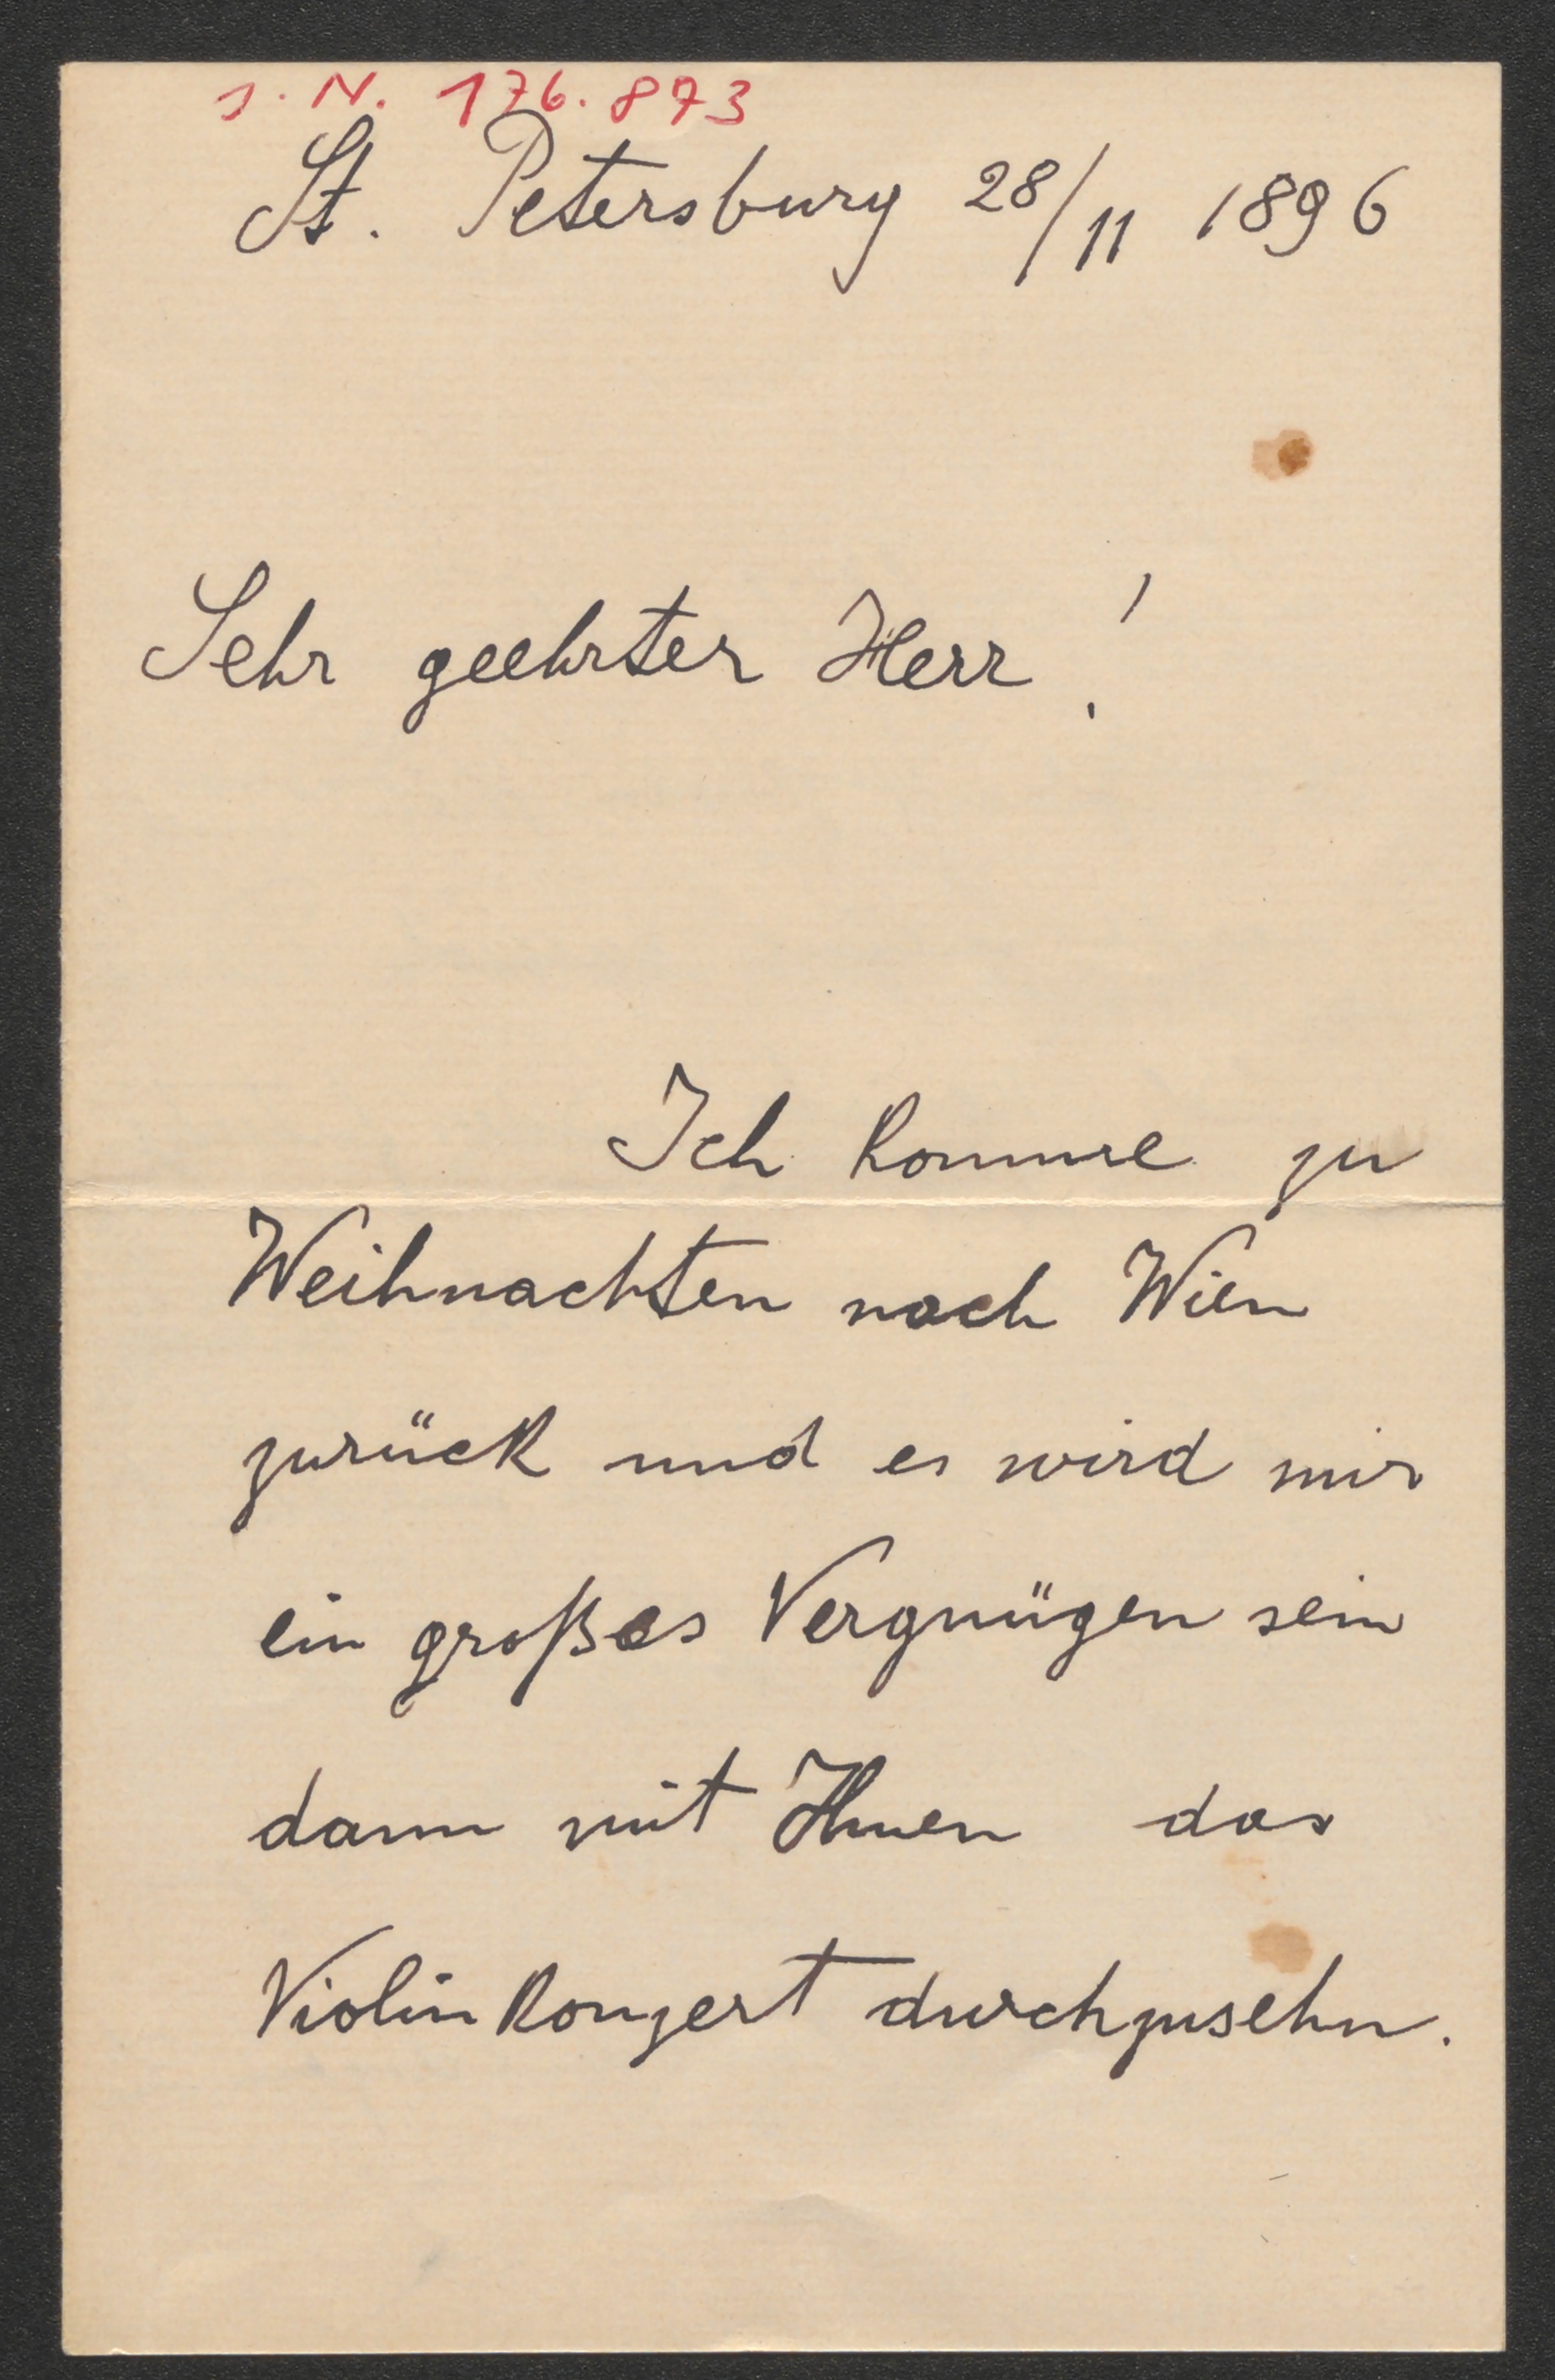 J. N. 176.873
St. Petersburg 28/11 1896
Sehr geehrter Herr!
Ich komme zu
Weihnachten nach Wien
zurück und es wird mir
ein großes Vergnügen sein
dann mit Ihnen das
Violinkonzert durchzusehn.